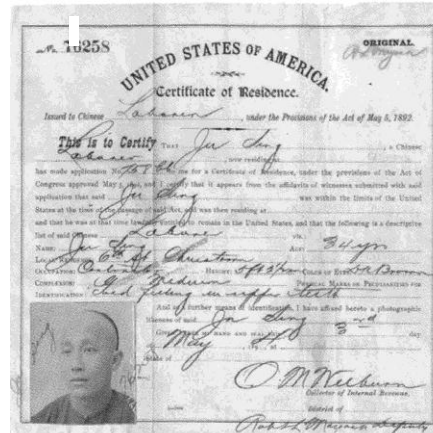 No. 16258
ORIGINAL.
UNITED STATES OF AMERICA.
Certificate of Residence.
Issued to Chinese Laborer, under the Provisions of the Act of May 5, 1892.
This is to Certify THAT Ju Sing, a Chinese
Laborer, now residing at
has made application No. to me for a Certificate of Residence, under the provisions of the Act of
Congress approved May 5, 1892, and I certify that it appears from the affidavits of witnesses submitted with said
application that said Ju Sing was within the limits of the United
States at the time of the passage of said Act, and was then residing at
and that he was at that time lawfully entitled to remain in the United States, and that the following is a descriptive
list of said Chinese Laborer viz.:
NAME: Ju Sing AGE: 34 yrs
LOCAL RESIDENCE: 6th St
OCCUPATION: HEIGHT: COLOR OF EYES: Brown
COMPLEXION: Medium PHYSICAL MARKS OR PECULIARITIES FOR
IDENTIFICATION: in upper teeth
And as a further means of identification, I have affixed hereto a photographic
likeness of said Ju Sing
GIVEN UNDER MY HAND AND SEAL this 3rd day
of May
State of
O M Welburn
Collector of Internal Revenue,
District of
Deputy